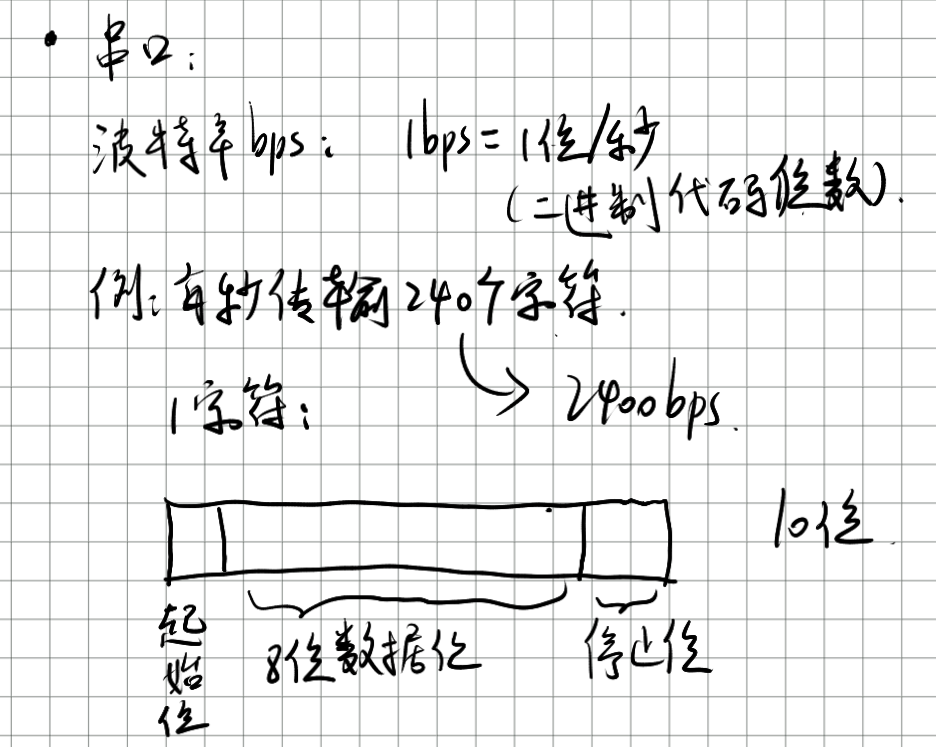 • 串口:
波特率bps: 1bps=1位/秒
(二进制代码位数).
例:每秒传输240个字符.
1字符: 2400bps.
10位.
起始位 8位数据位 停止位